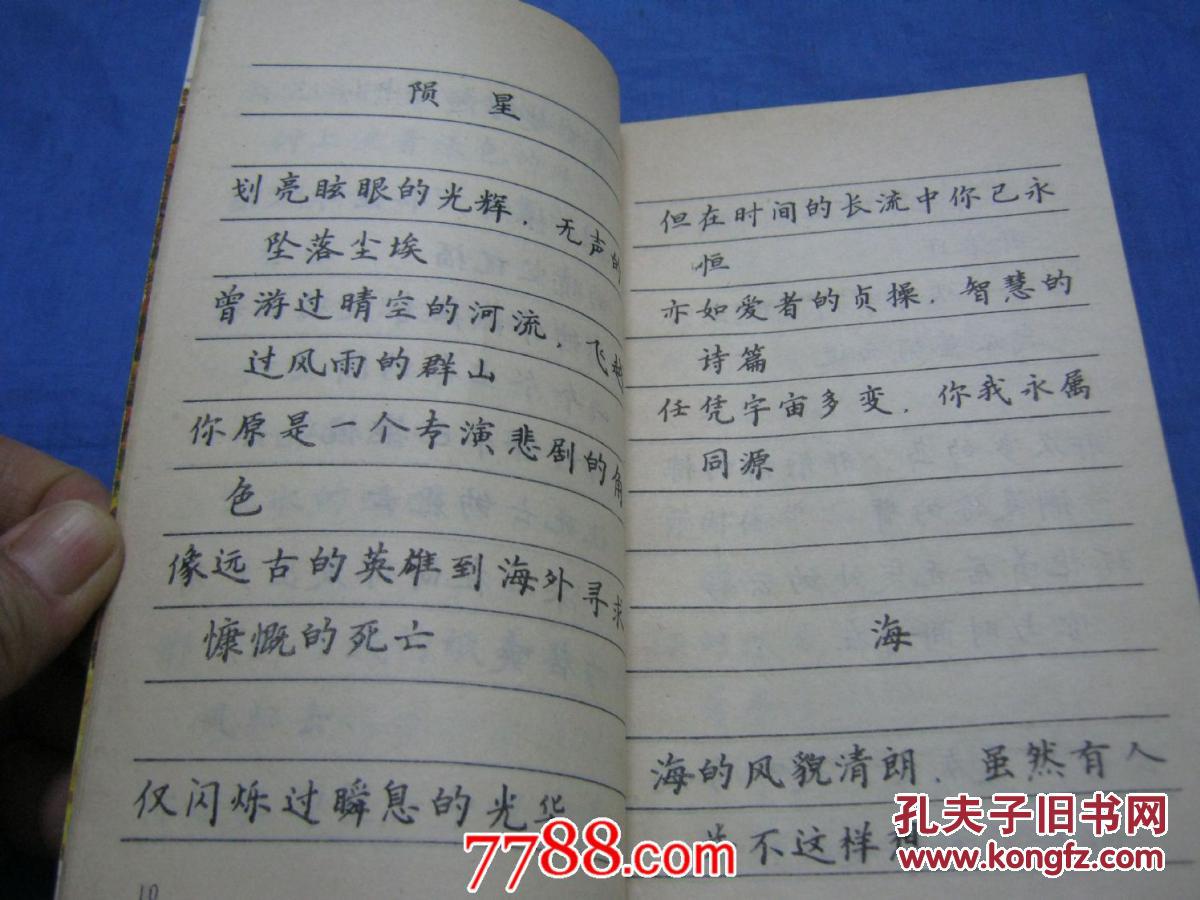 陨星
划亮眩眼的光辉，无声的
坠落尘埃
曾游过晴空的河流，飞越
过风雨的群山
你原是一个专演悲剧的角
色
像远古的英雄到海外寻求
慷慨的死亡
仅闪烁过瞬息的光华
10
但在时间的长流中你已永
恒
亦如爱者的贞操，智慧的
诗篇
任凭宇宙多变，你我永属
同源
海
海的风貌清朗，虽然有人
并不这样想
7788.com
孔夫子旧书网
www.kongfz.com